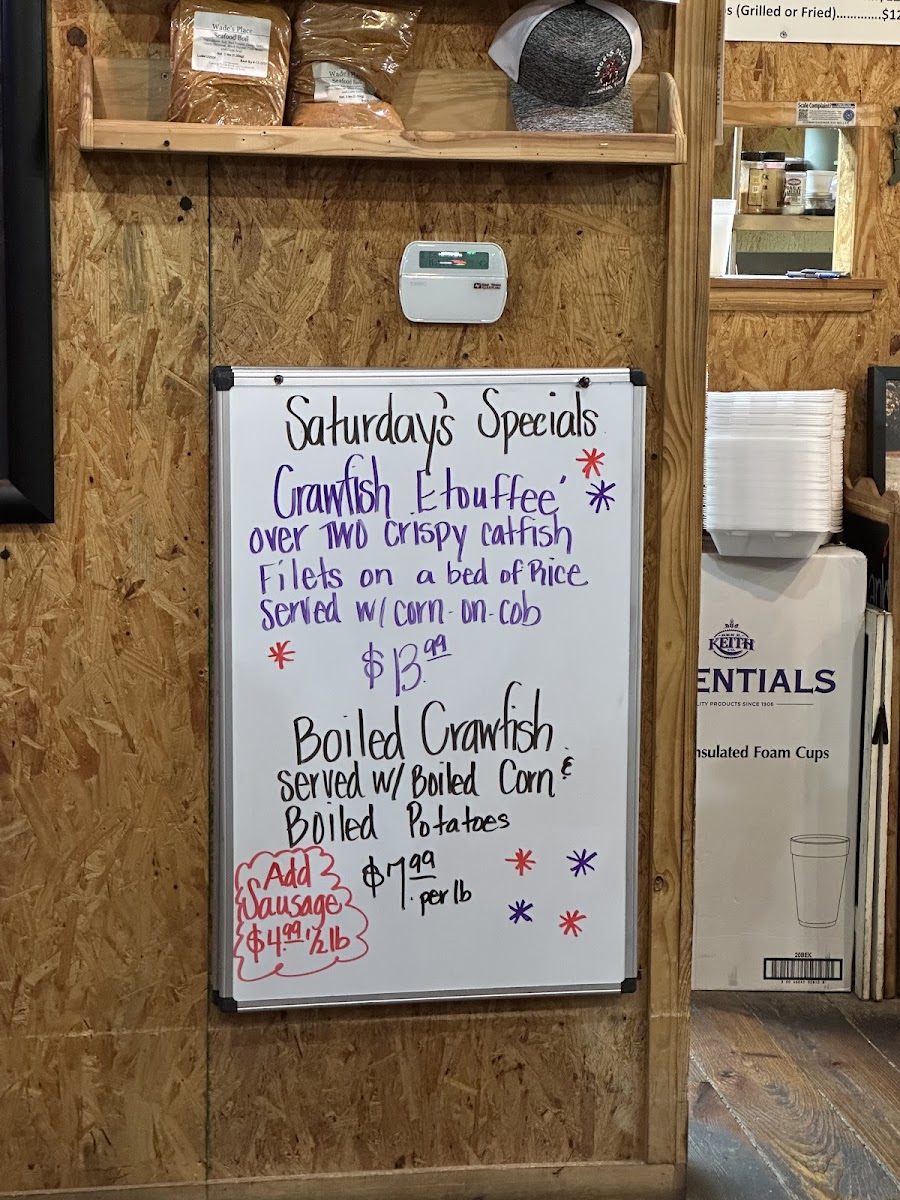 Wade's Place
Seafood Boil
Seafood Boil
s (Grilled or Fried).............$12
Scale Complaint?
Saturday's Specials
Crawfish Etouffee'
over TWO Crispy catfish
Filets on a bed of Rice
served w/ corn-on-cob
$13.99
Boiled Crawfish
served w/ Boiled Corn &
Boiled Potatoes
$7.99
per lb
Add
Sausage
$4.99 1/2 lb
KEITH
ENTIALS
ITY PRODUCTS SINCE 1906
nsulated Foam Cups
20BEK